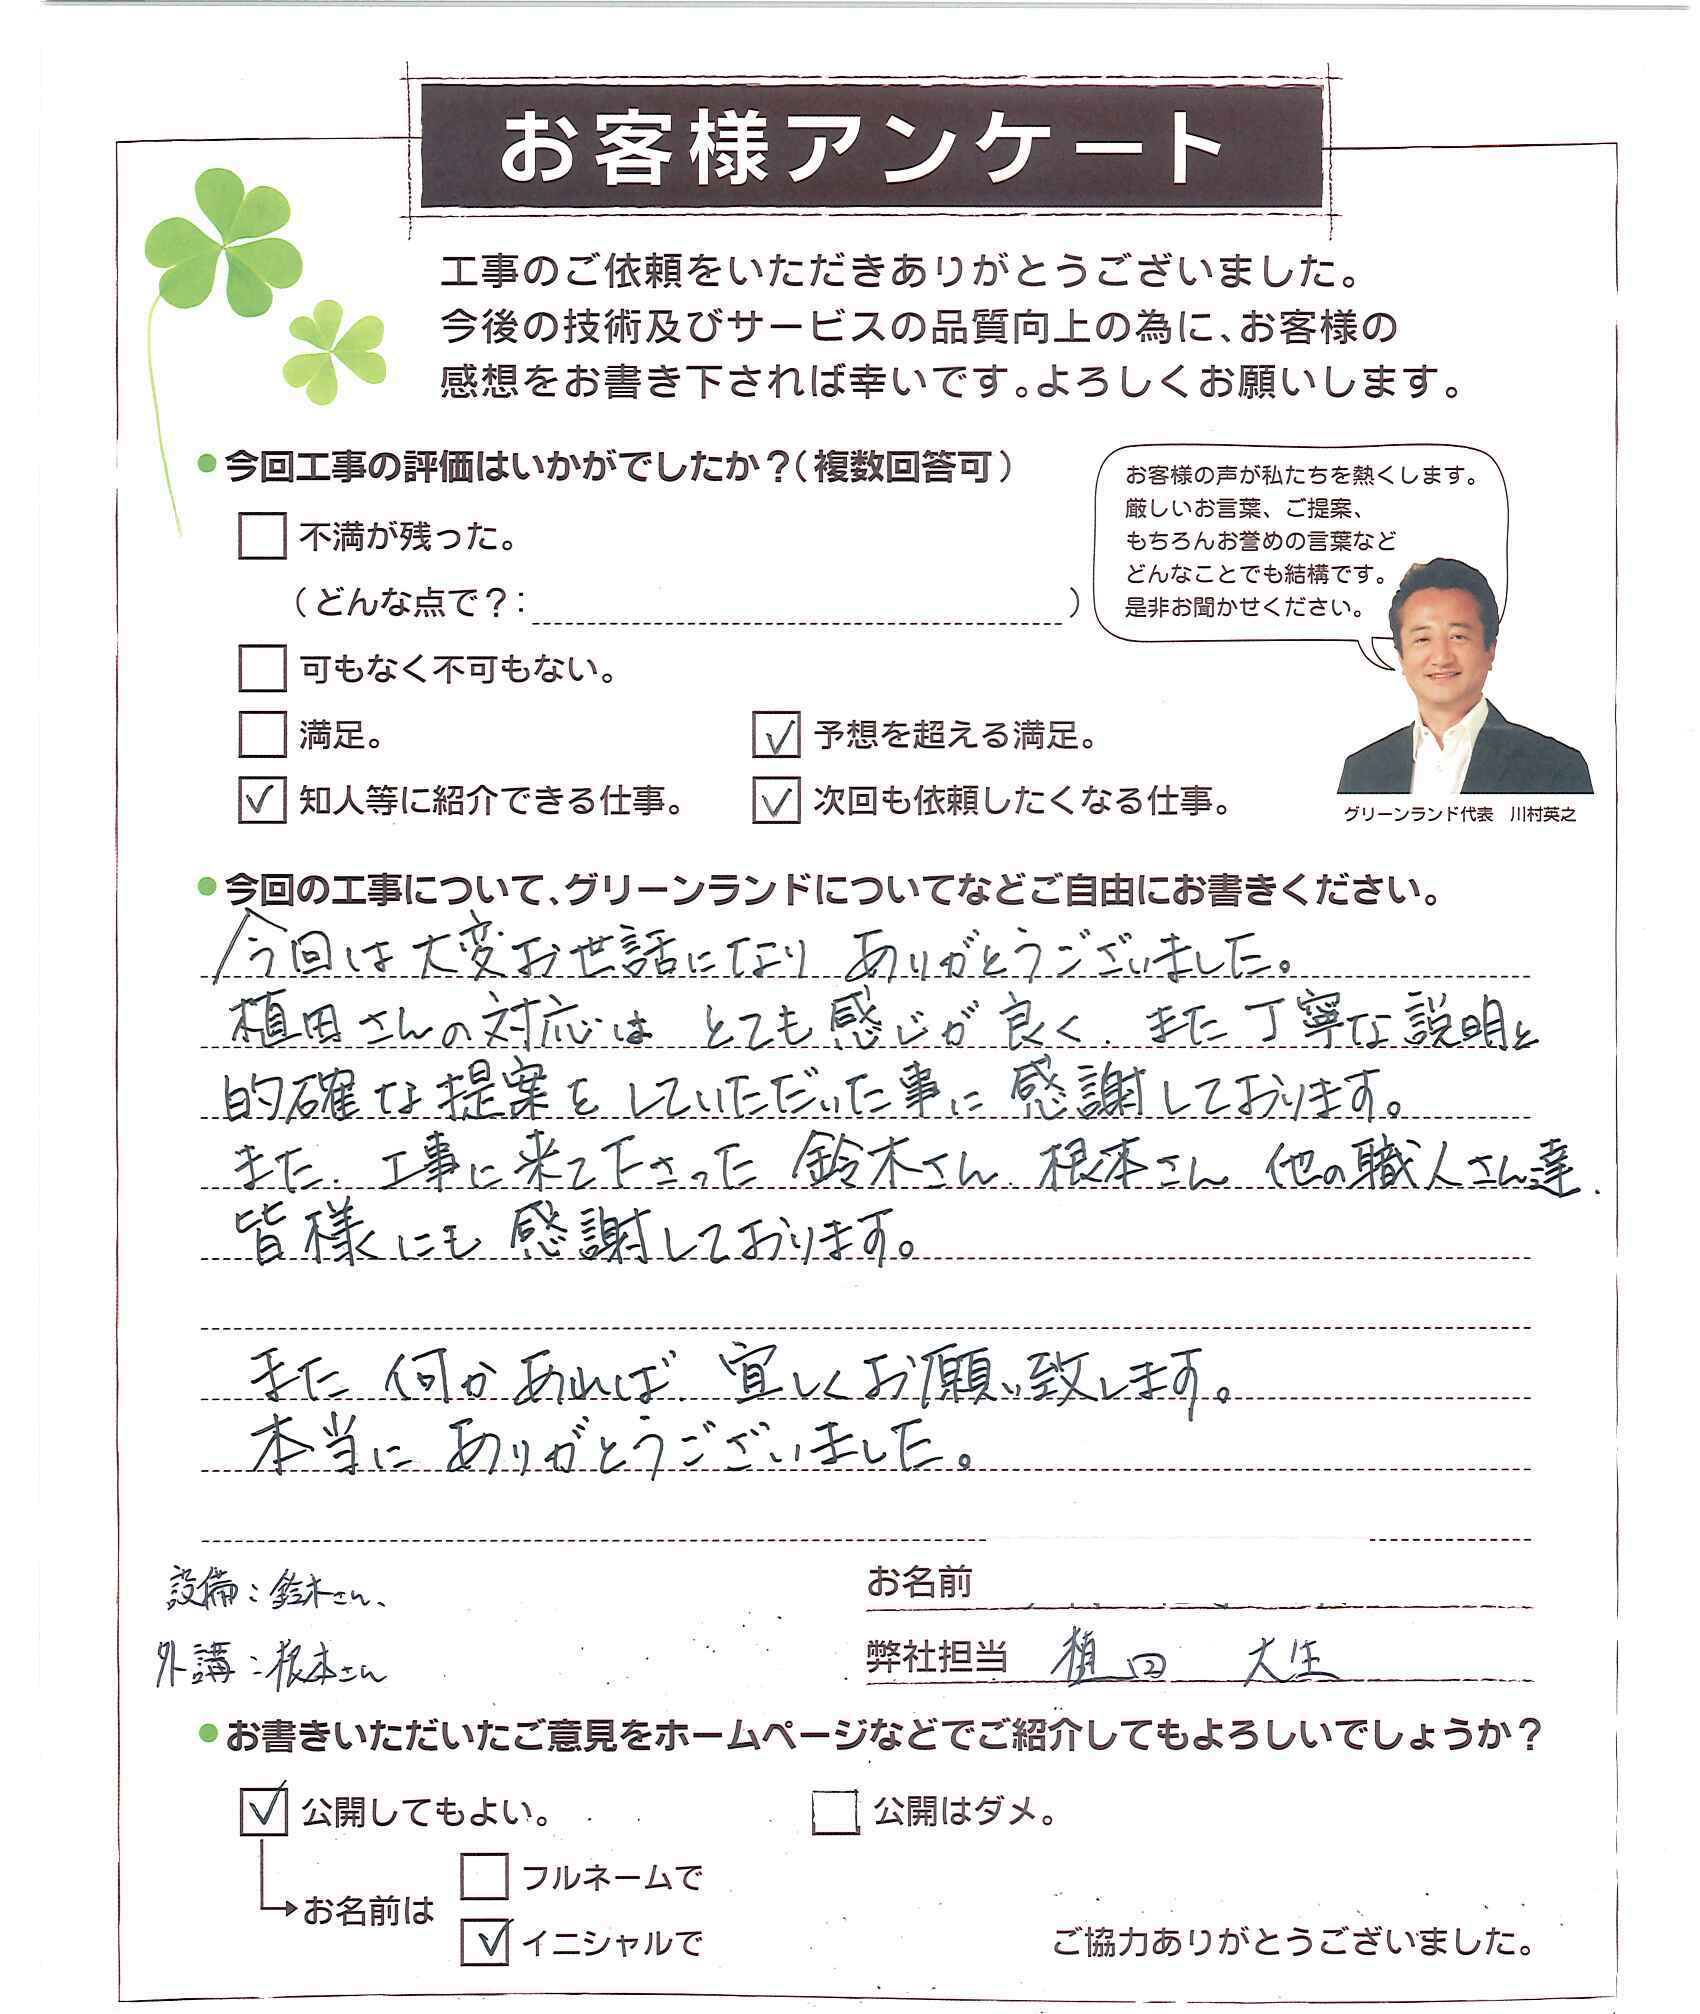 お客様アンケート
工事のご依頼をいただきありがとうございました。
今後の技術及びサービスの品質向上の為に、お客様の
感想をお書き下されば幸いです。よろしくお願いします。
●今回工事の評価はいかがでしたか？（複数回答可）
お客様の声が私たちを熱くします。
厳しいお言葉、ご提案、
もちろんお誉めの言葉など
どんなことでも結構です。
是非お聞かせください。
不満が残った。
（どんな点で？：　）
可もなく不可もない。
満足。
予想を超える満足。
知人等に紹介できる仕事。
次回も依頼したくなる仕事。
グリーンランド代表　川村英之
●今回の工事について、グリーンランドについてなどご自由にお書きください。
今回は大変お世話になり ありがとうございました。
植田さんの対応は とても感じが良く、また丁寧な説明と
的確な提案を していただいた事に 感謝しております。
また、工事に来て下さった 鈴木さん、根本さん 他の職人さん達、
皆様にも 感謝しております。
また 何かあれば、宜しくお願い致します。
本当に ありがとうございました。
設備：鈴木さん、
外講：根本さん
お名前
弊社担当　植田　大生
●お書きいただいたご意見をホームページなどでご紹介してもよろしいでしょうか？
公開してもよい。
公開はダメ。
お名前は
フルネームで
イニシャルで
ご協力ありがとうございました。